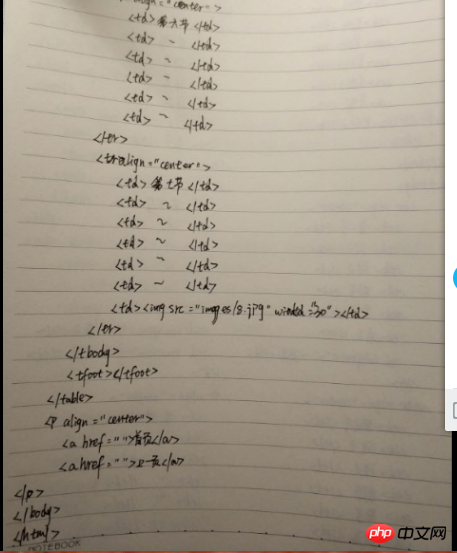 align="center">
<td>第六节</td>
<td> ~ </td>
<td> ~ </td>
<td> ~ </td>
<td> ~ </td>
<td> ~ </td>
</tr>
<tralign="center">
<td>第七节</td>
<td> ~ </td>
<td> ~ </td>
<td> ~ </td>
<td> ~ </td>
<td> ~ </td>
<td><img src="images/8.jpg" ="30"></td>
</tr>
</tbody>
<tfoot></tfoot>
</table>
<p align="center">
<a href="">首页</a>
<a href="">上一页</a>
</p>
</body>
</html>
NOTEBOOK
php 中文网